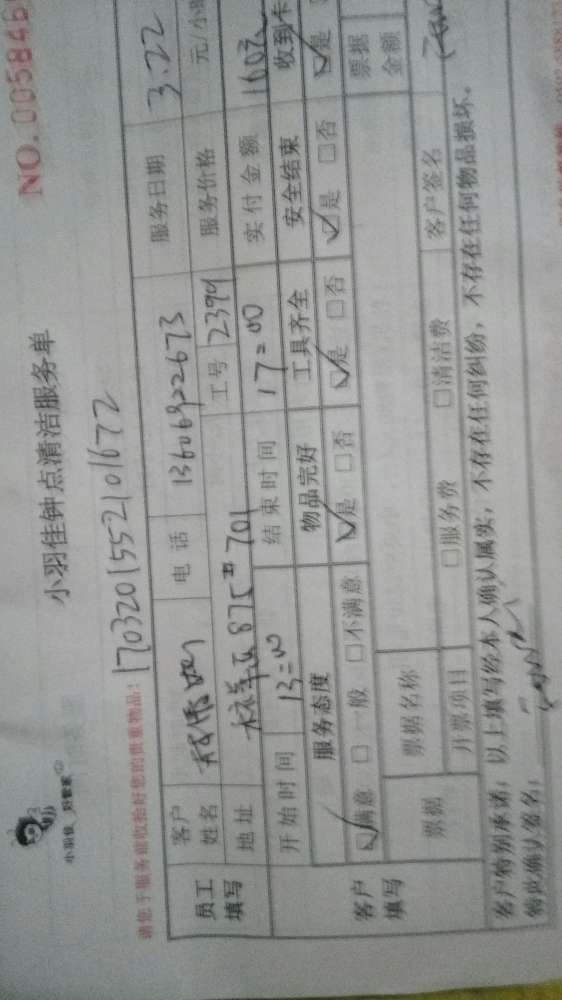 小羽佳 好管家
小羽佳钟点清洁服务单
NO.005846
请您于服务前收拾好您的贵重物品!
1703201552101672
员工填写
客户姓名
电话 13606922673
服务日期 3.22
地址 701
工号 2394
服务价格 元/小时
开始时间 13:00
结束时间 17:00
实付金额 160元
客户填写
服务态度 物品完好 工具齐全 安全结束 收到卡
☑满意 □一般 □不满意 ☑是 □否 ☑是 □否 ☑是 □否 ☑是
票据 票据名称 票据金额
开票项目 □服务费 □清洁费 客户签名
客户特别承诺:以上填写经本人确认属实,不存在任何纠纷,不存在任何物品损坏。
特此确认签名: